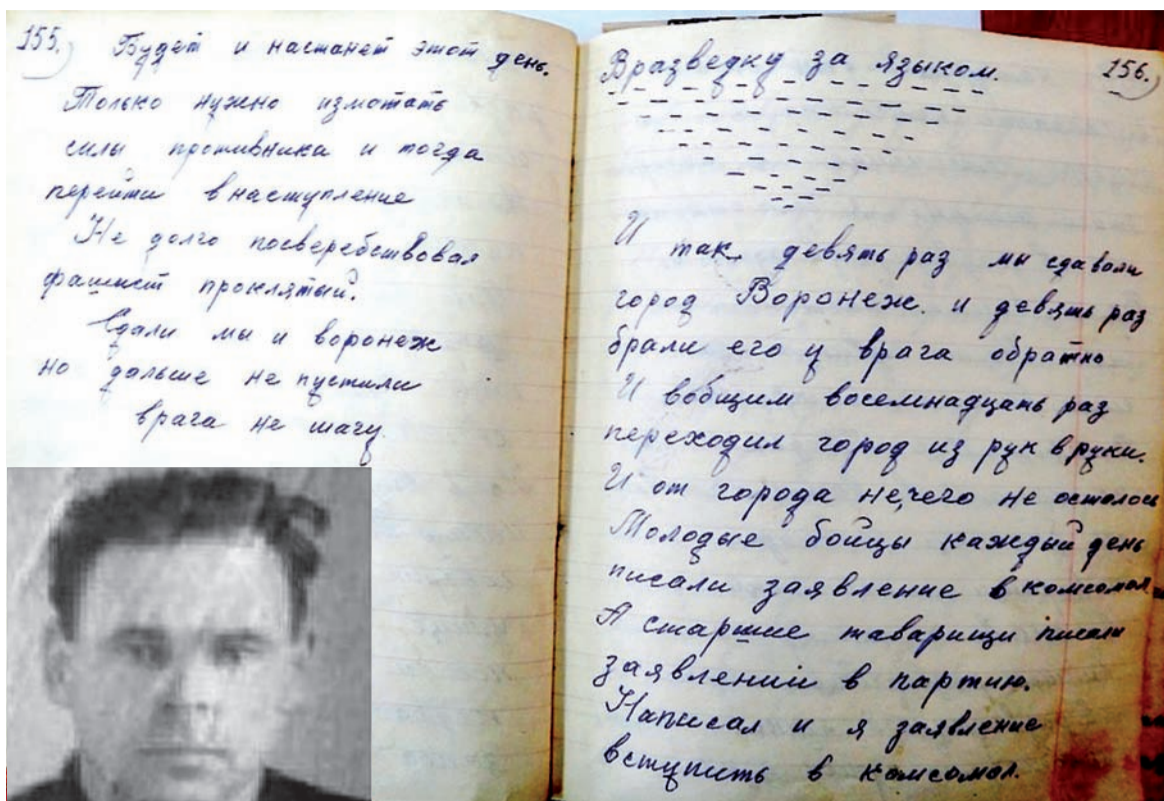 155.) Будет и настанет этот день.
Только нужно измотать
силы противника и тогда
перейти в наступление
Не долго посверебствовал
фашист проклятый.
Сдали мы и воронеж
но дальше не пустили
врага не шагу
В разведку за языком. 156.)
И так девять раз мы сдавали
город Воронеж. и девять раз
брали его у врага обратно
И вобщим восемнадцать раз
переходил город из рук в руки.
И от города не,чего не осталось
Молодые бойцы каждый день
писали заявление в комсомол.
А старшие таварищи писали
заявлений в партию.
Написал и я заявление
вступить в комсомол.